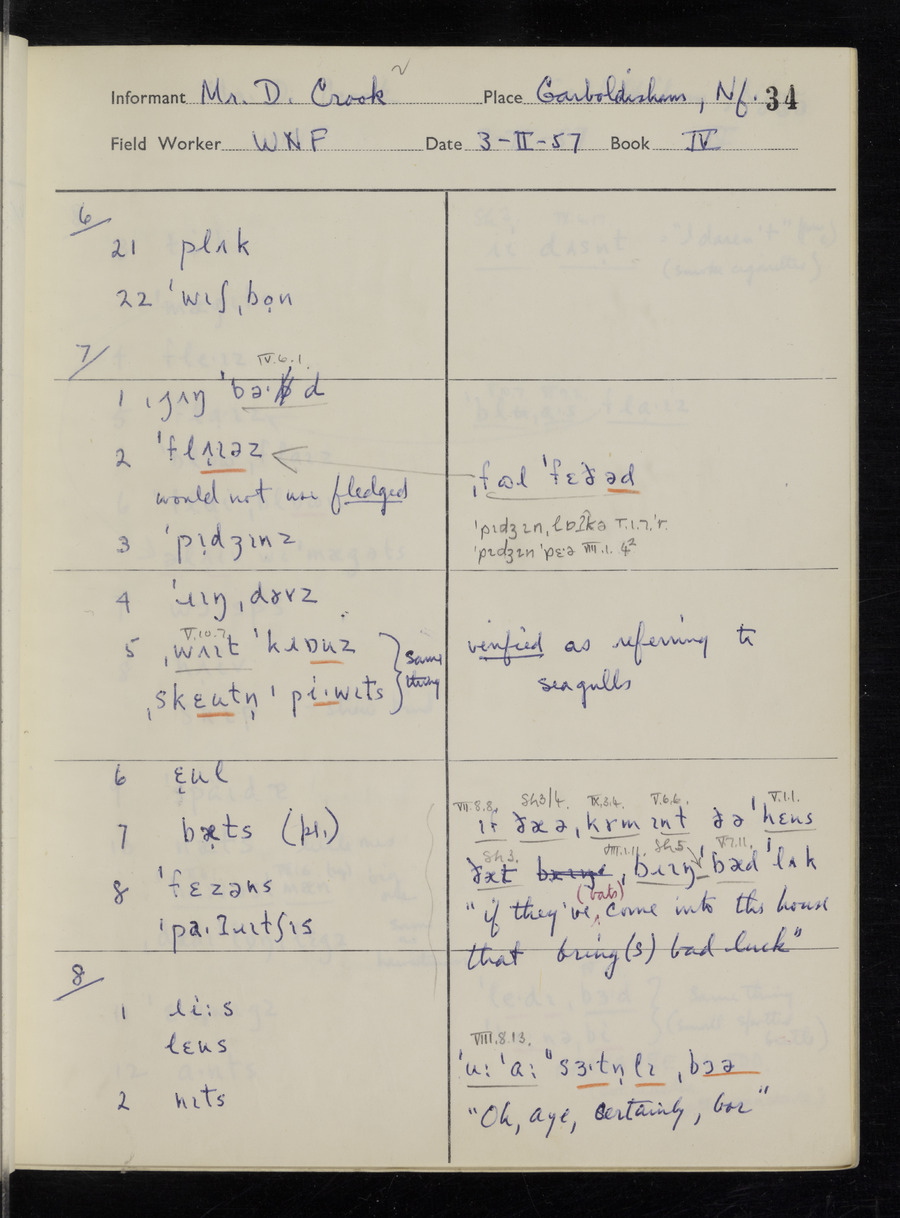 Informant Mr. D. Crook Place Garboldisham, Nf. 34
Field Worker WNF Date 3-II-57 Book IV
6/
21 plʌk
22 ˈwɪʃˌbo̜n
7/
IV.6.1.
1 ˌjʌŋ ˈbəˑd
2 ˈflɪɪəz
would not use fledged
ˌfɷl ˈfɛðəd
3 ˈpɪdʒɪnz
ˈpɪdʒɪn
ˈpɪdʒɪn ˈpɛˑə VIII.1. 4²
4 ˈɹɪŋˌdɤvz
V.10.7.
5 ˌwʌɪt ˈkɹɒuz
ˌskɛutn̩ ˈpiˑwɪts
same
thing
verified as referring to
seagulls
6 ɛ̜ul
7 bæts (pl.)
VII.8.8. Sh3/4. IX.3.4. V.6.6. V.1.1.
ɪf ðæə ˌkɤm ɪnt ðə ˈhɛus
Sh3. VIII.1.11. Sh5 V.7.11.
ðæt ˌbɹɪŋ ˈbæd ˈlʌk
8 ˈfɛzəns
(bats)
"if they've, come into the house
ˈpaˑʔɹɪtʃɪs
that bring(s) bad luck"
8/
1 liːs
lɛus
VIII.8.13.
ˈuː ˈaː "sɜˑtn̩lɪ ˌbɔə
2 nɪts
"Oh, aye, certainly, bor"